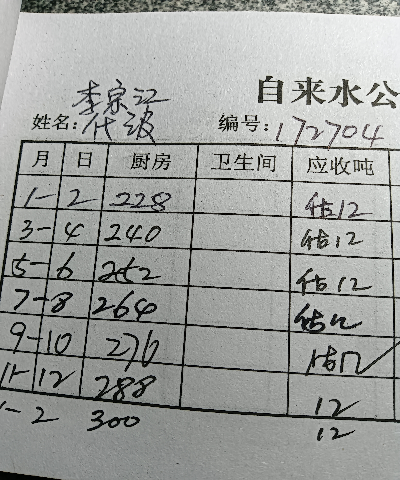 自来水公
李宗江
姓名: 代波 编号: 172704
月 日 厨房 卫生间 应收吨
1-2 228 估12
3-4 240 估12
5-6 252 估12
7-8 264 估12
9-10 276 估12
11-12 288 12
1-2 300 12